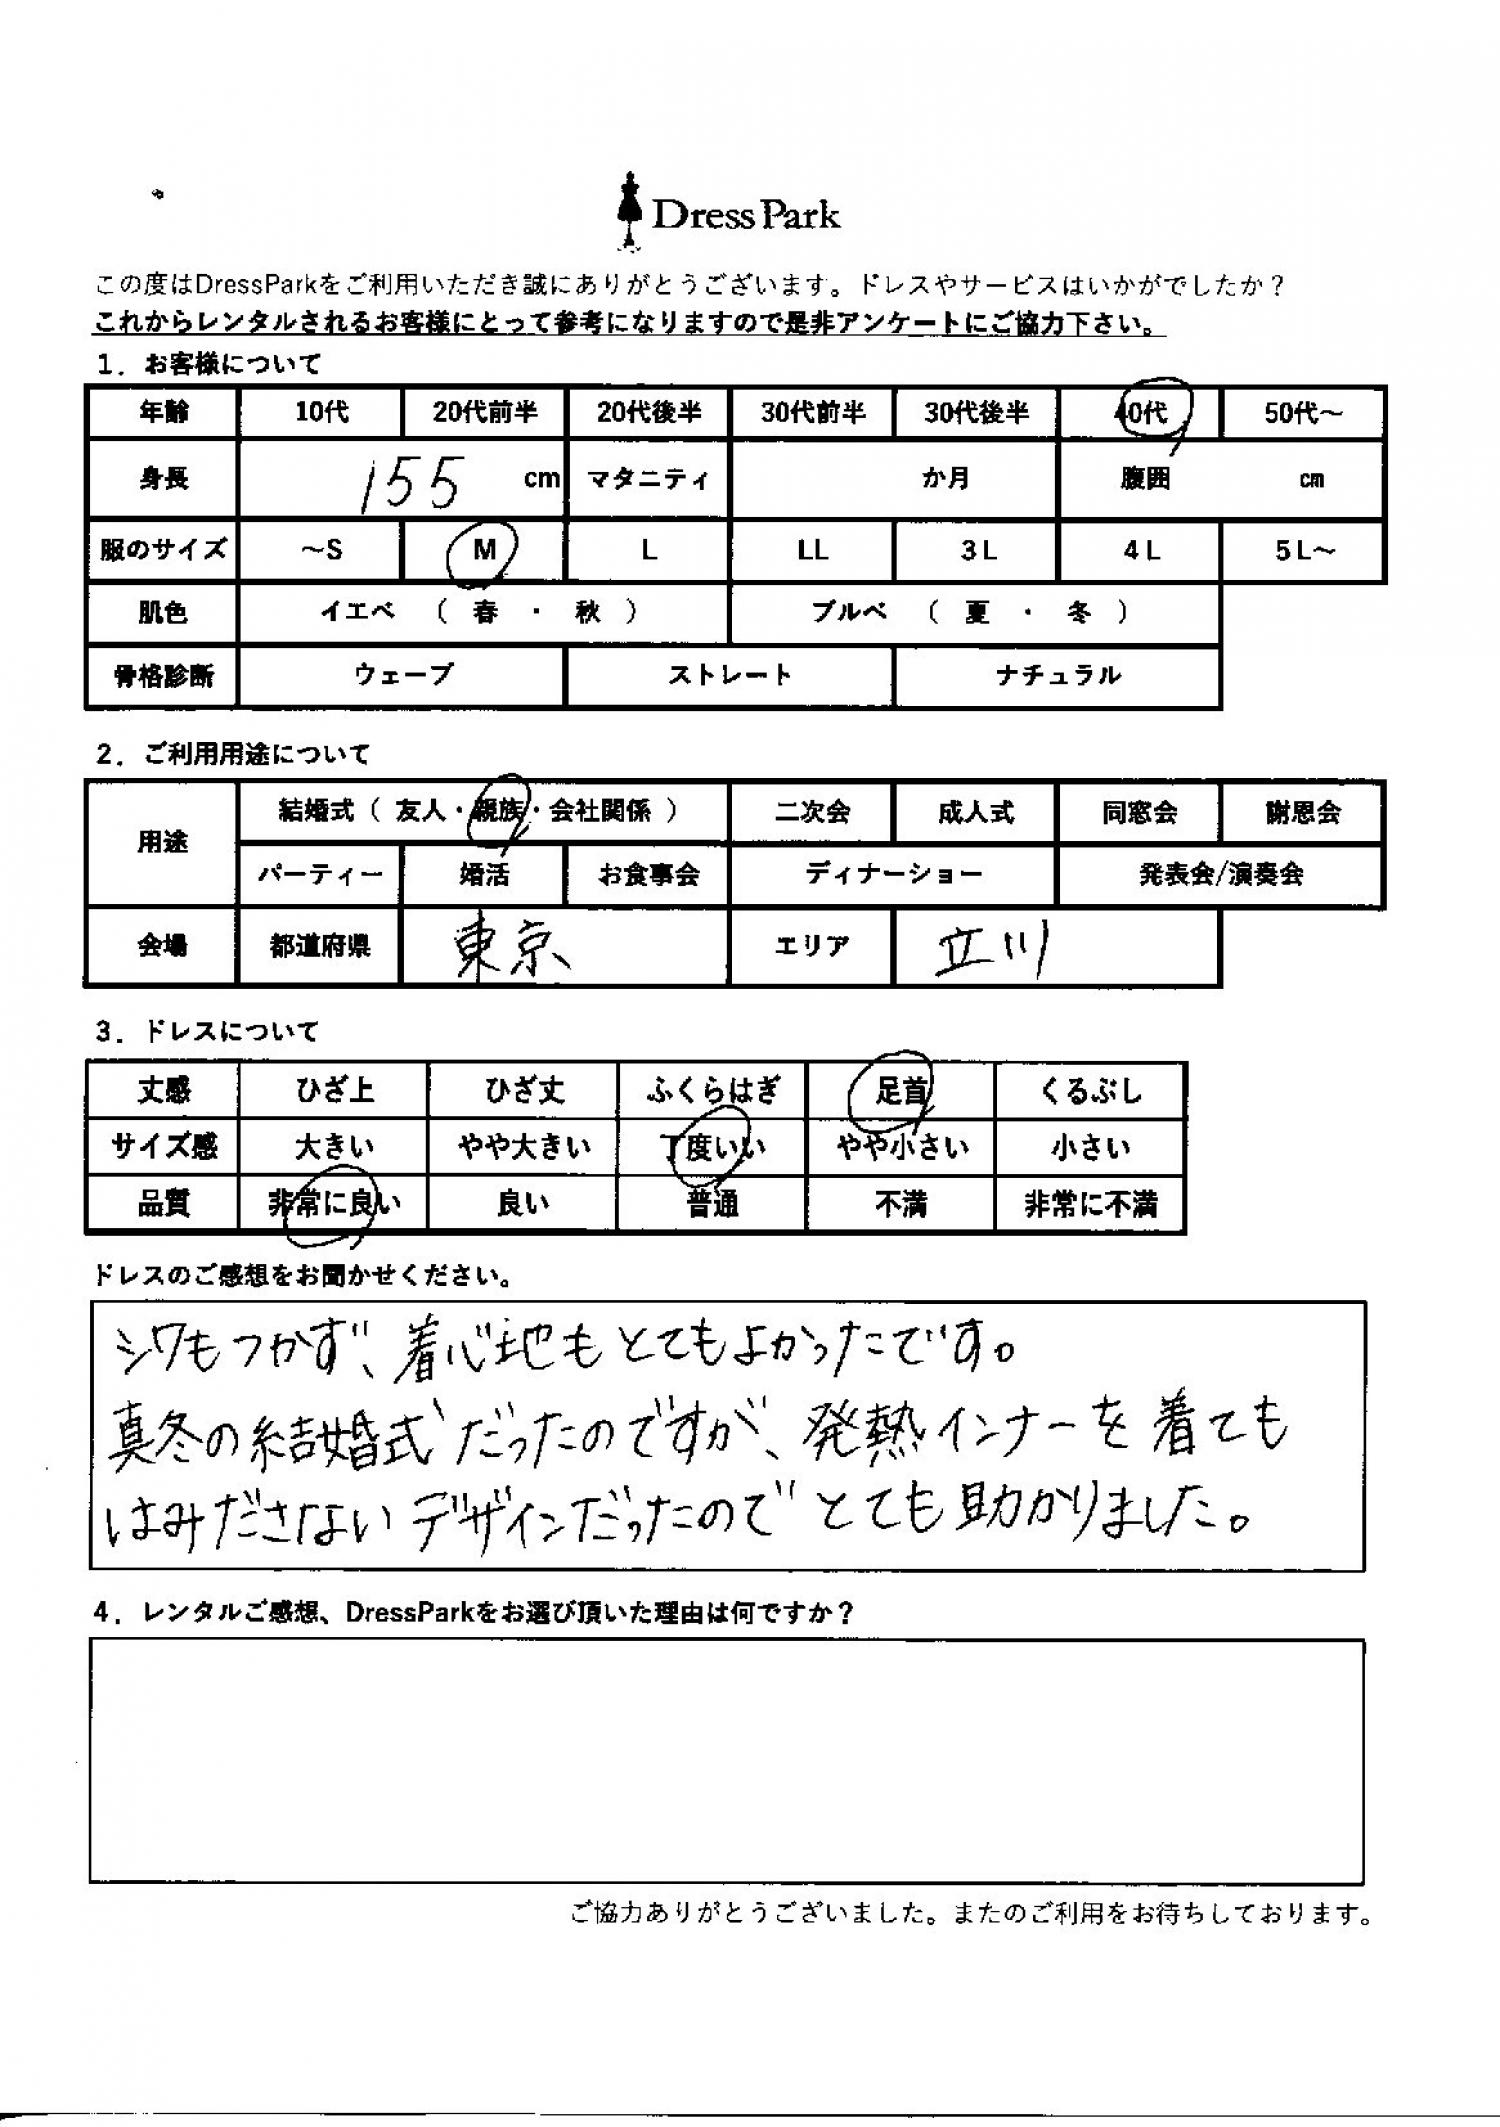 DressPark
この度はDressParkをご利用いただき誠にありがとうございます。ドレスやサービスはいかがでしたか？
これからレンタルされるお客様にとって参考になりますので是非アンケートにご協力下さい。
1．お客様について
年齢 10代 20代前半 20代後半 30代前半 30代後半 40代 50代～
身長 155 cm マタニティ か月 腹囲 cm
服のサイズ ～S M L LL 3L 4L 5L～
肌色 イエベ （ 春 ・ 秋 ） ブルベ （ 夏 ・ 冬 ）
骨格診断 ウェーブ ストレート ナチュラル
2．ご利用用途について
用途 結婚式（ 友人・親族・会社関係 ） 二次会 成人式 同窓会 謝恩会
パーティー 婚活 お食事会 ディナーショー 発表会/演奏会
会場 都道府県 東京 エリア 立川
3．ドレスについて
丈感 ひざ上 ひざ丈 ふくらはぎ 足首 くるぶし
サイズ感 大きい やや大きい 丁度いい やや小さい 小さい
品質 非常に良い 良い 普通 不満 非常に不満
ドレスのご感想をお聞かせください。
シワもつかず、着心地もとてもよかったです。
真冬の結婚式だったのですが、発熱インナーを着ても
はみださないデザインだったのでとても助かりました。
4．レンタルご感想、DressParkをお選び頂いた理由は何ですか？
ご協力ありがとうございました。またのご利用をお待ちしております。